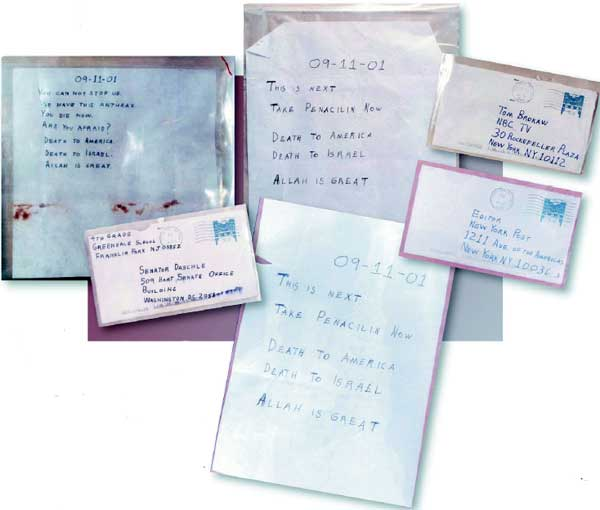 09-11-01
YOU CAN NOT STOP US.
WE HAVE THIS ANTHRAX.
YOU DIE NOW.
ARE YOU AFRAID?
DEATH TO AMERICA.
DEATH TO ISRAEL.
ALLAH IS GREAT.
09-11-01
THIS IS NEXT
TAKE PENACILIN NOW
DEATH TO AMERICA
DEATH TO ISRAEL
ALLAH IS GREAT
TOM BROKAW
NBC TV
30 ROCKEFELLER PLAZA
NEW YORK NY 10112
EDITOR
NEW YORK POST
1211 AVE. OF THE AMERICAS
NEW YORK NY 10036
4TH GRADE
GREENDALE SCHOOL
FRANKLIN PARK NJ 08852
SENATOR DASCHLE
509 HART SENATE OFFICE
BUILDING
WASHINGTON DC
09-11-01
THIS IS NEXT
TAKE PENACILIN NOW
DEATH TO AMERICA
DEATH TO ISRAEL
ALLAH IS GREAT